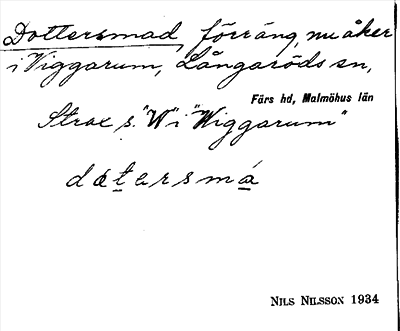 Dottersmad, förr äng, nu åker
i Viggarum, Långaröds sn,
Färs hd, Malmöhus län
Strax s. "W" i "Wiggarum"
dótersmá
NILS NILSSON 1934